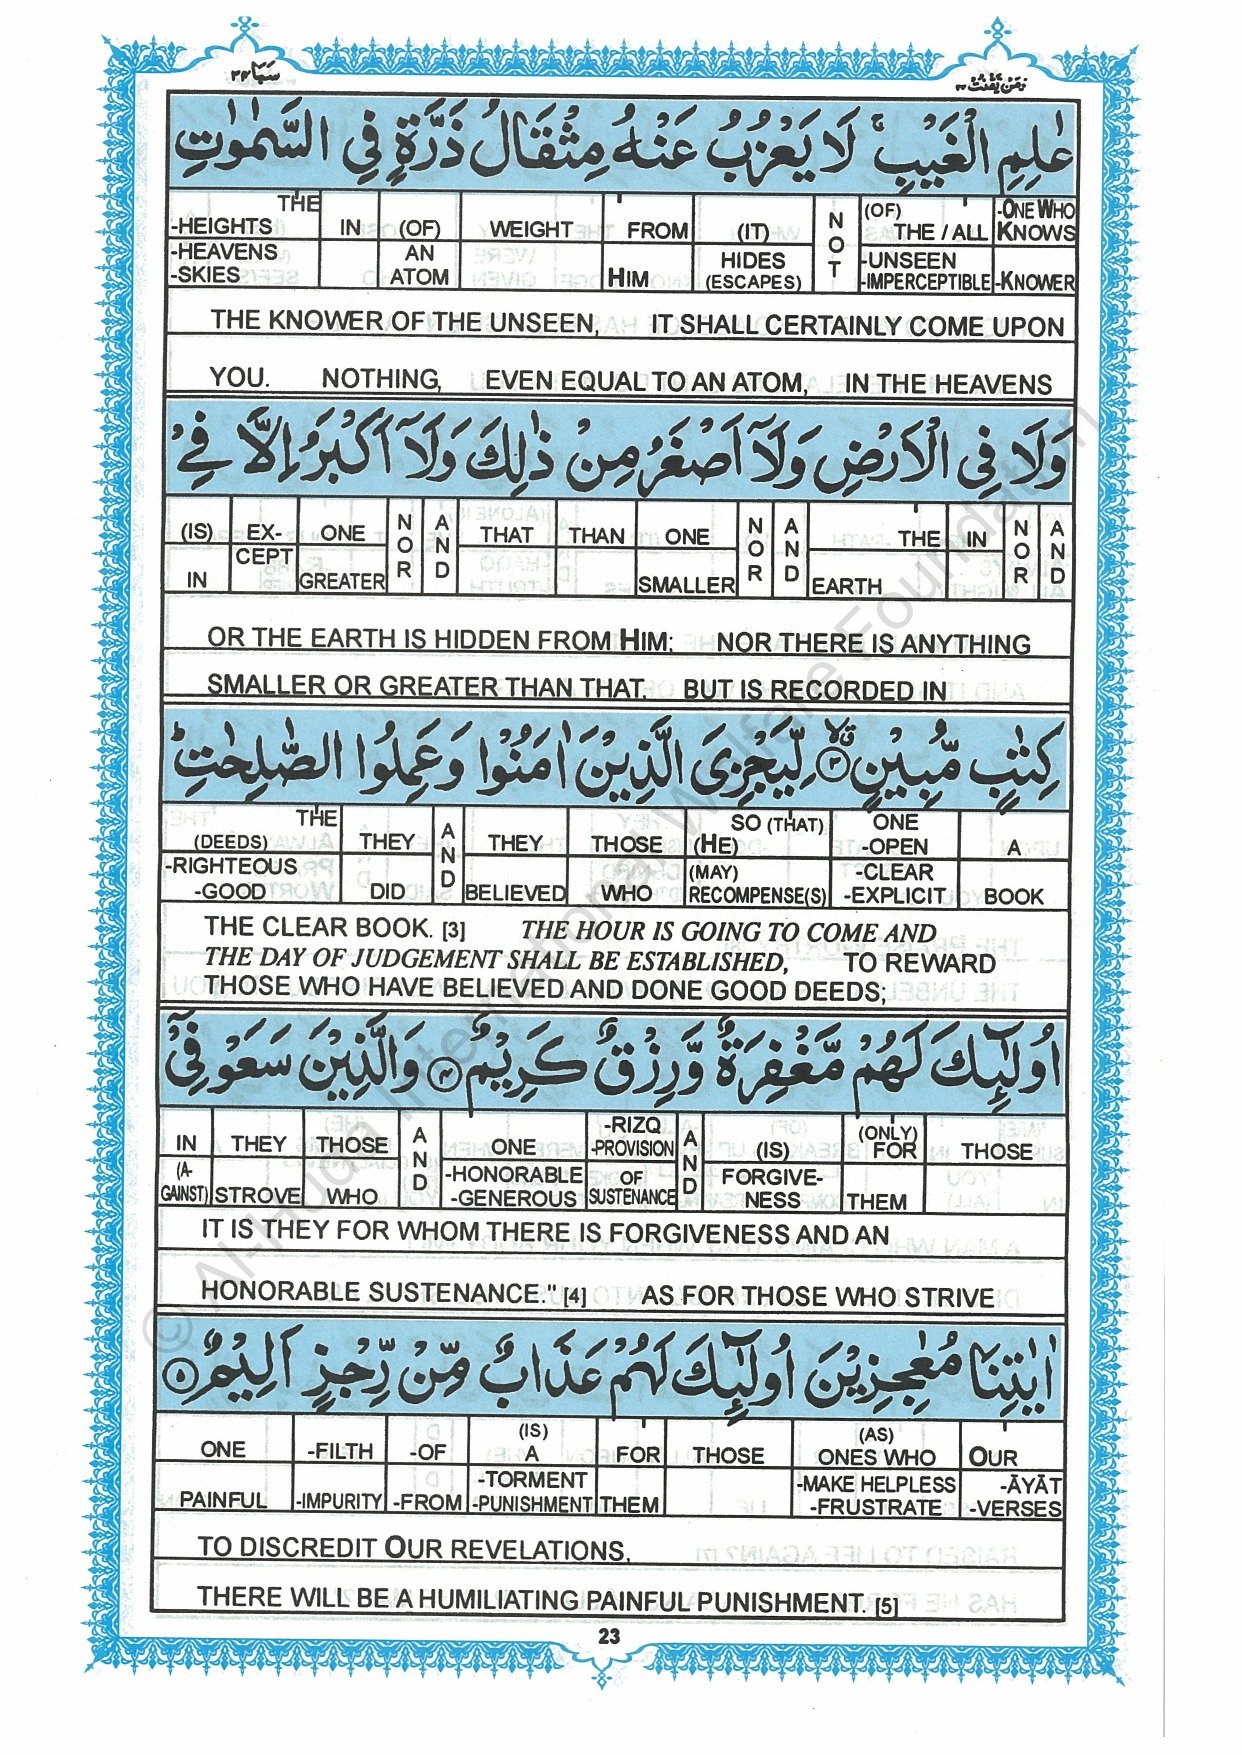 سَبَا ٣٤
وَمَنْ يَّقْنُتْ ٢٢
عٰلِمِ الْغَيْبِ ۚ لَا يَعْزُبُ عَنْهُ مِثْقَالُ ذَرَّةٍ فِي السَّمٰوٰتِ
THE -HEIGHTS IN (OF) WEIGHT FROM (IT) NOT (OF) THE / ALL -ONE WHO KNOWS
-HEAVENS -SKIES AN ATOM HIM HIDES (ESCAPES) -UNSEEN -IMPERCEPTIBLE -KNOWER
THE KNOWER OF THE UNSEEN, IT SHALL CERTAINLY COME UPON
YOU. NOTHING, EVEN EQUAL TO AN ATOM, IN THE HEAVENS
وَلَا فِي الْاَرْضِ وَلَاۤ اَصْغَرُ مِنْ ذٰلِكَ وَلَاۤ اَكْبَرُ اِلَّا فِيْ
(IS) EX- ONE NOR AND THAT THAN ONE NOR AND THE IN NOR AND
IN CEPT GREATER SMALLER EARTH
OR THE EARTH IS HIDDEN FROM HIM; NOR THERE IS ANYTHING
SMALLER OR GREATER THAN THAT. BUT IS RECORDED IN
كِتٰبٍ مُّبِيْنٍ ۙ٣ لِّيَجْزِيَ الَّذِيْنَ اٰمَنُوْا وَعَمِلُوا الصّٰلِحٰتِ ؕ
THE (DEEDS) THEY AND THEY THOSE SO (THAT) (HE) ONE -OPEN A
-RIGHTEOUS -GOOD DID BELIEVED WHO (MAY) RECOMPENSE(S) -CLEAR -EXPLICIT BOOK
THE CLEAR BOOK. [3] THE HOUR IS GOING TO COME AND
THE DAY OF JUDGEMENT SHALL BE ESTABLISHED, TO REWARD
THOSE WHO HAVE BELIEVED AND DONE GOOD DEEDS;
اُولٰٓئِكَ لَهُمْ مَّغْفِرَةٌ وَّرِزْقٌ كَرِيْمٌ ٤ وَالَّذِيْنَ سَعَوْ فِيْۤ
IN THEY THOSE AND ONE -RIZQ -PROVISION AND (IS) (ONLY) FOR THOSE
(A- GAINST) STROVE WHO -HONORABLE -GENEROUS OF SUSTENANCE FORGIVE- NESS THEM
IT IS THEY FOR WHOM THERE IS FORGIVENESS AND AN
HONORABLE SUSTENANCE." [4] AS FOR THOSE WHO STRIVE
اٰيٰتِنَا مُعٰجِزِيْنَ اُولٰٓئِكَ لَهُمْ عَذَابٌ مِّنْ رِّجْزٍ اَلِيْمٌ ٥
ONE -FILTH -OF (IS) A FOR THOSE (AS) ONES WHO OUR
PAINFUL -IMPURITY -FROM -TORMENT -PUNISHMENT THEM -MAKE HELPLESS -FRUSTRATE -ĀYĀT -VERSES
TO DISCREDIT OUR REVELATIONS,
THERE WILL BE A HUMILIATING PAINFUL PUNISHMENT. [5]
23
© Al-Huda International Welfare Foundation